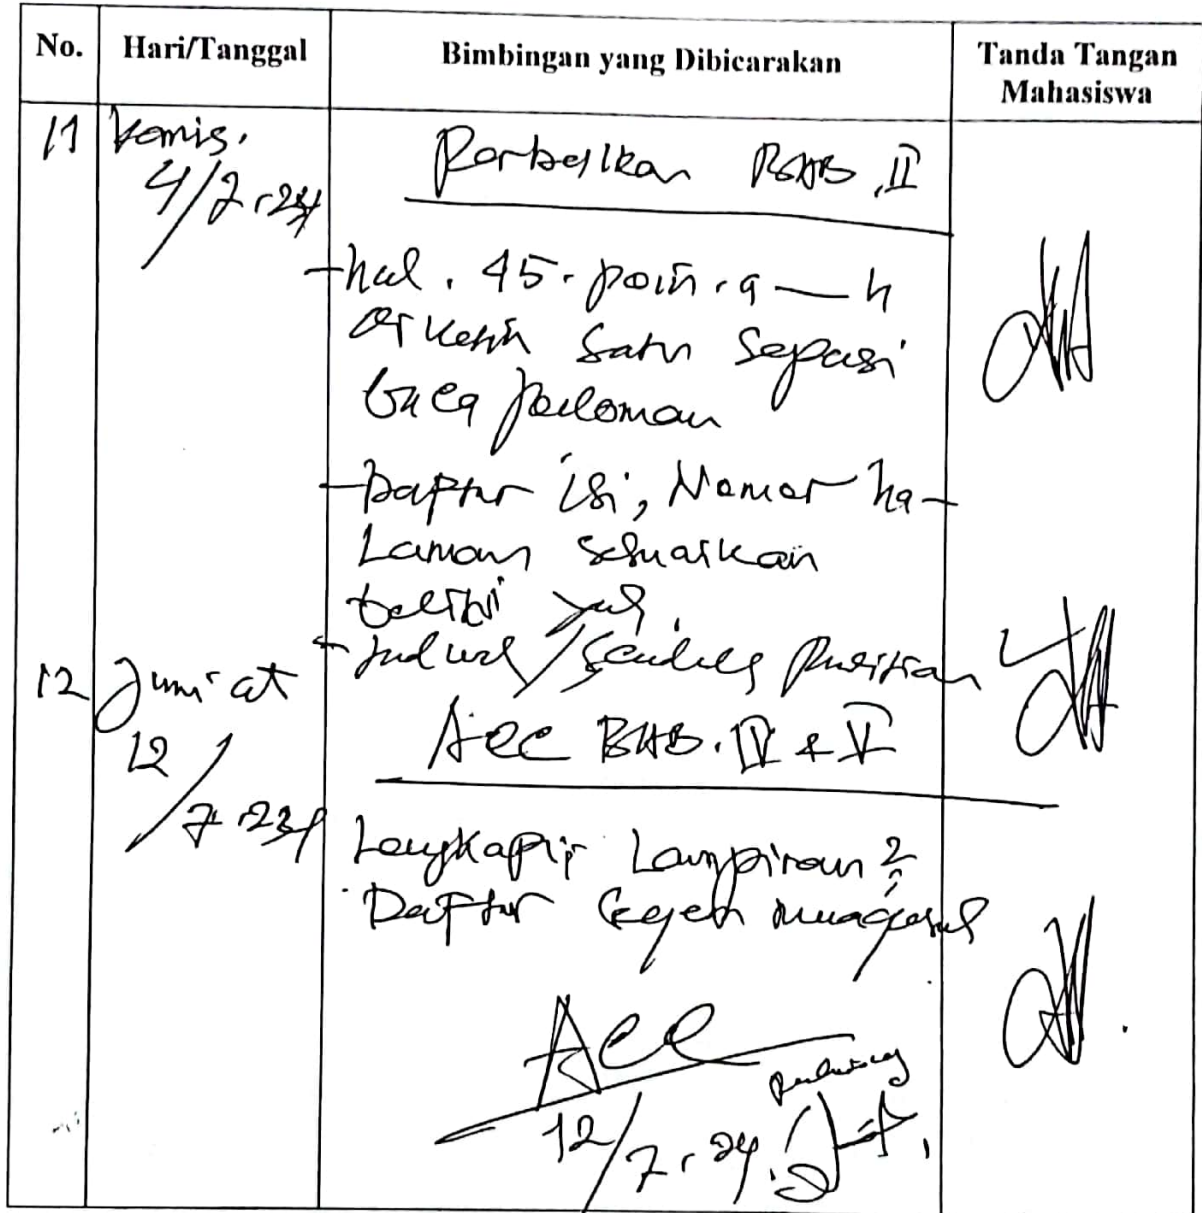 No. Hari/Tanggal Bimbingan yang Dibicarakan Tanda Tangan Mahasiswa
11 Kamis. Perbaikan BAB. II
4/7-24
- hal. 45. poin. a — h
di ketik satu sepasi
baca pedoman
- Daftar isi, Nomor ha-
laman sesuaikan
- Judul /
12 Jum'at
Acc BAB. IV & V
12/7-24
Lengkapi Lampiran2
Daftar
Acc
12/7-24.